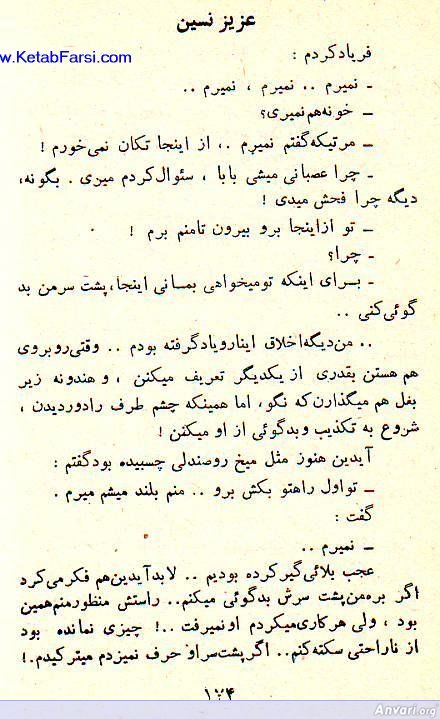 عزیز نسین
www.KetabFarsi.com
فریاد کردم :
ـ نمیرم .. نمیرم ، نمیرم ..
ـ خونه هم نمیری؟
ـ مرتیکه گفتم نمیرم .. از اینجا تکان نمی‌خورم !
ـ چرا عصبانی میشی بابا ، سئوال کردم میری . بگونه،
دیگه چرا فحش میدی !
ـ تو از اینجا برو بیرون تا منم برم !
ـ چرا؟
ـ بـرای اینکه تو میخواهی بمـانی اینجا، پشت سر من بد
گوئی کنی ..
.. من دیگه اخلاق اینارو یاد گرفته بودم .. وقتی روبروی
هم هستن بقدری از یکدیگر تعریف میکنن ، و هندونه زیر
بغل هم میگذارن که نگو، اما همینکه چشم طرف را دور دیدن ،
شروع به تکذیب و بدگوئی از او میکنن !
آیدین هنوز مثل میخ رو صندلی چسبیده بود گفتم :
ـ تو اول راهتو بکش برو .. منم بلند میشم میرم .
گفت :
ـ نمیرم ..
عجب بلائی گیر کرده بودیم .. لابد آیدین هم فکر می‌کرد
اگر بره من پشت سرش بدگوئی میکنم.. راستش منظور منم همین
بود ، ولی هر کاری میکردم او نمیرفت ..! چیزی نمانده بود
از ناراحتی سکته کنم.. اگر پشت سر او حرف نمیزدم میترکیدم.!
۱۷۴
Anvari.org